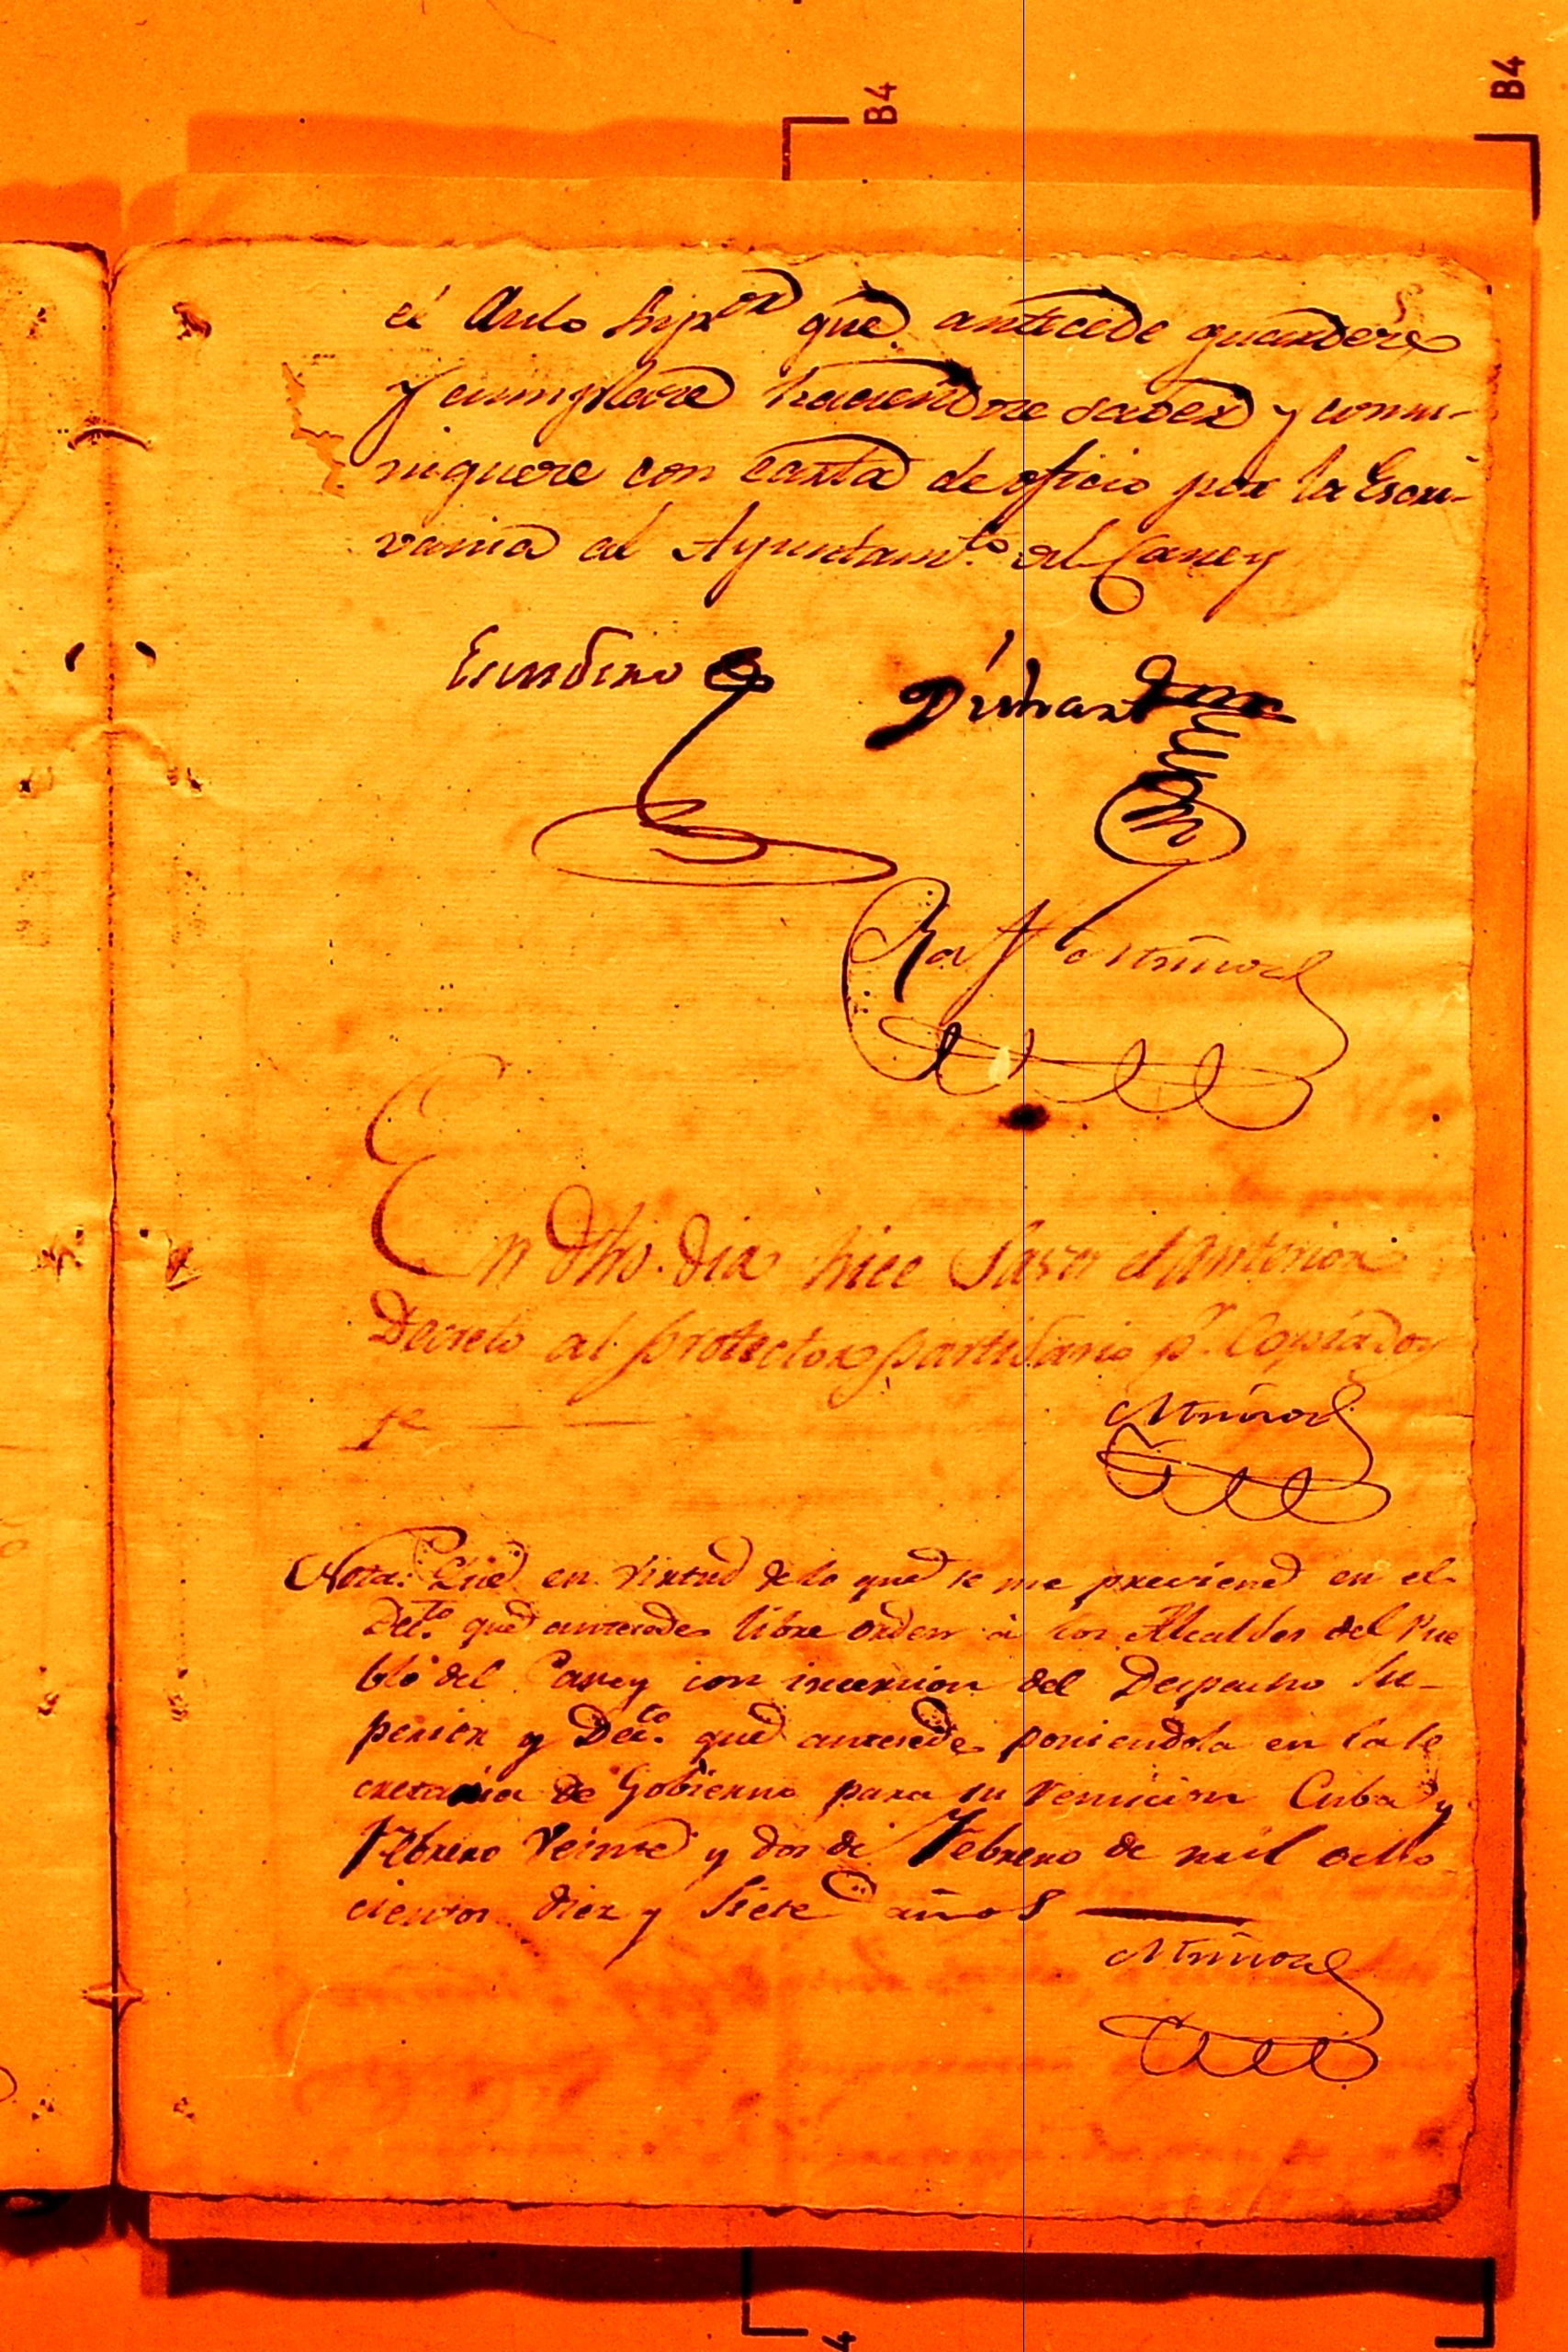 B4
B4
el Auto Supor que antecede guardese
y cumplase haciendose saver y comu-
niquese con carta de oficio por la Escri-
vania al Ayuntamto del Caney
Escudero
Raf Muñoz
En dho. dia hice Saver el anterior
Decreto al protector partidario
fe
Muñoz
Nota: Que en virtud de lo que se me previene en el
Decto. que antecede libre orden á los Alcaldes del Pue
blo del Caney con incercion del Despacho Su-
perior y Decto. que antecede poniendola en la Se
cretaria de Gobierno para su remicion Cuba y
Febrero Veinte y dos de Febrero de mil ocho
cientos diez y Siete años
Muñoz
4